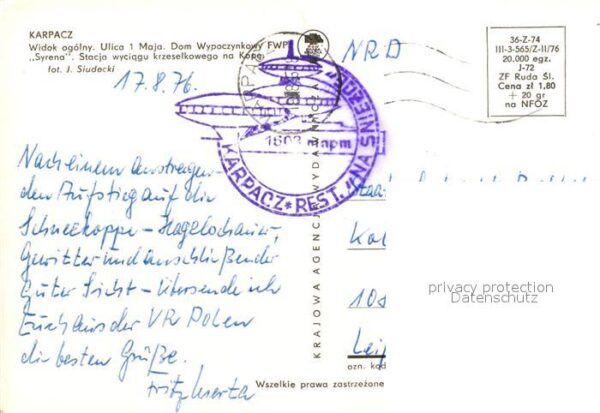 KARPACZ
Widok ogólny. Ulica 1 Maja. Dom Wypoczynkowy FWP
„Syrena". Stacja wyciągu krzesełkowego na Kopę
fot. J. Siudecki
17.8.76.
Nach einem anstrengen-
den Aufstieg auf die
Schneekoppe - Hagelschauer,
Gewitter und anschließender
guter Sicht - übersende ich
Euch aus der VR Polen
die besten Grüße.
Fritz
KRAJOWA AGENCJA WYDAWNICZA
1603 m npm
KARPACZ * REST. „NA ŚNIEŻCE"
NRD
36-Z-74
III-3-565/Z-II/76
20.000 egz.
J-72
ZF Ruda Śl.
Cena zł 1,80
+ 20 gr
na NFOZ
privacy protection
Datenschutz
Leip
ozn. kod
Wszelkie prawa zastrzeżone